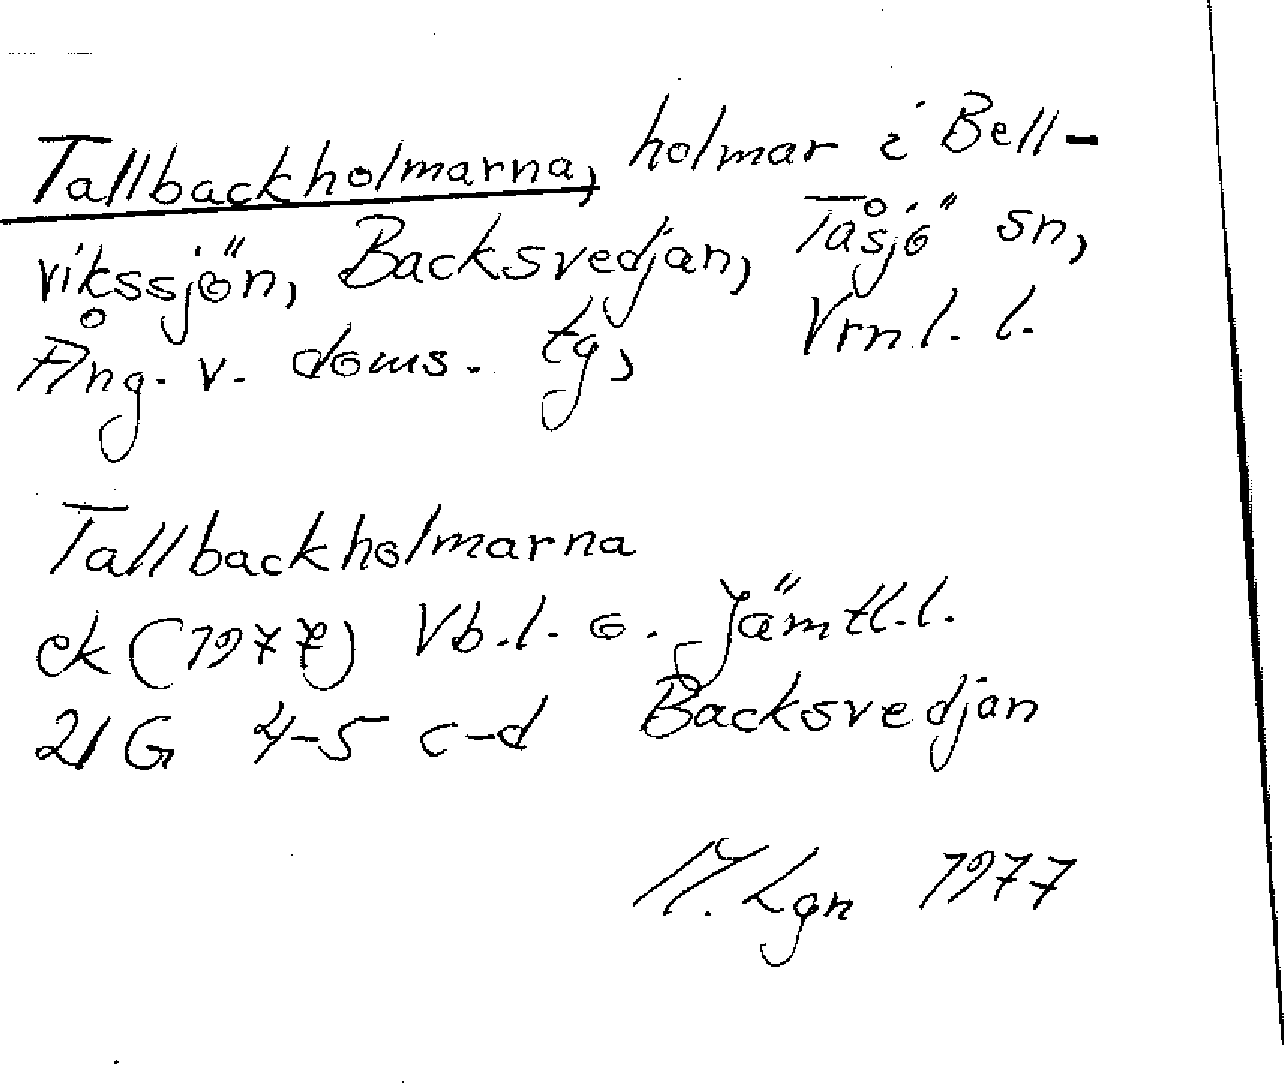 Tallbackholmarna, holmar i Bell-
vikssjön, Backsvedjan, Tåsjö sn,
Ång. v. doms. tg, Vrnl. l.
Tallbackholmarna
ek (1977) Vb.l. o. Jämtl.l.
21 G 4-5 c-d Backsvedjan
M. Lgn 1977